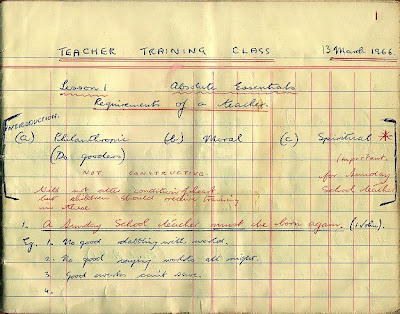 1
TEACHER TRAINING CLASS 13 March 1966.
Lesson 1 Absolute Essentials
Requirements of a teacher.
INTRODUCTION.
(a) Philanthropic (b) Moral (c) Spiritual *
(Do gooders) Important.
NOT CONSTRUCTIVE for Sunday
Will not alter condition of heart School teacher
but children should receive training
in these
1. A Sunday School teacher must be born again. (1 John).
Eg. 1. No good dabbling with world.
2. No good saying worlds all right.
3. Good works can't save.
4.